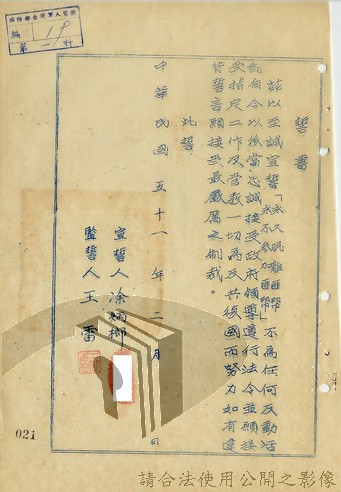 誓書
茲以至誠宣誓「永久脫離匪幫永不參加匪幫」不為任何反動活
動自今以後當忠誠接受政府領導遵行法令並願接
受指定工作及營救一切為反共復國而努力如有違
背誓言願接受最嚴厲之制裁。
此誓
宣誓人 涂炳榔
監誓人 王雷
中華民國五十一年二月 日
編：19
第一 行
021
請合法使用公開之影像